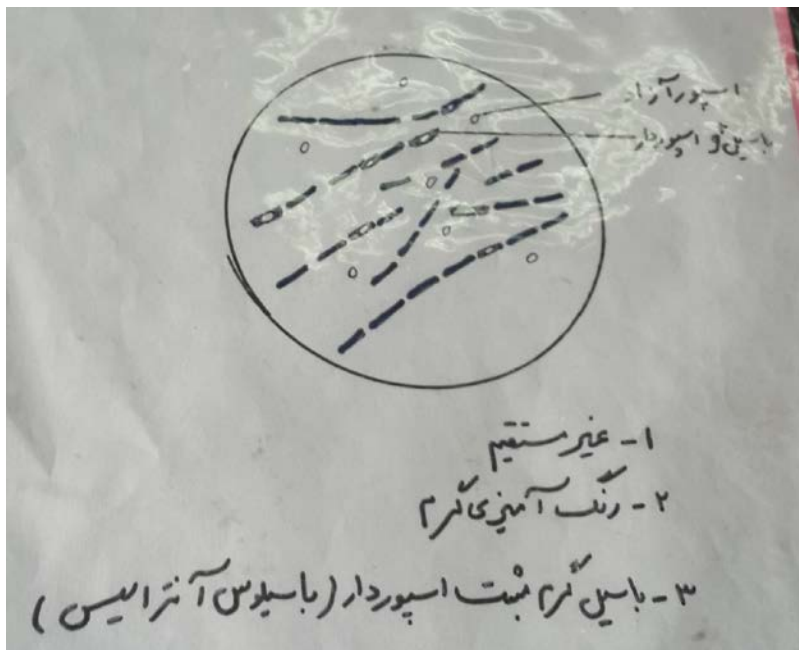 اسپور آزاد
باسیل اسپوردار
۱- غیر مستقیم
۲- رنگ آمیزی گرم
۳- باسیل گرم مثبت اسپوردار (باسیلوس آنتراسیس)